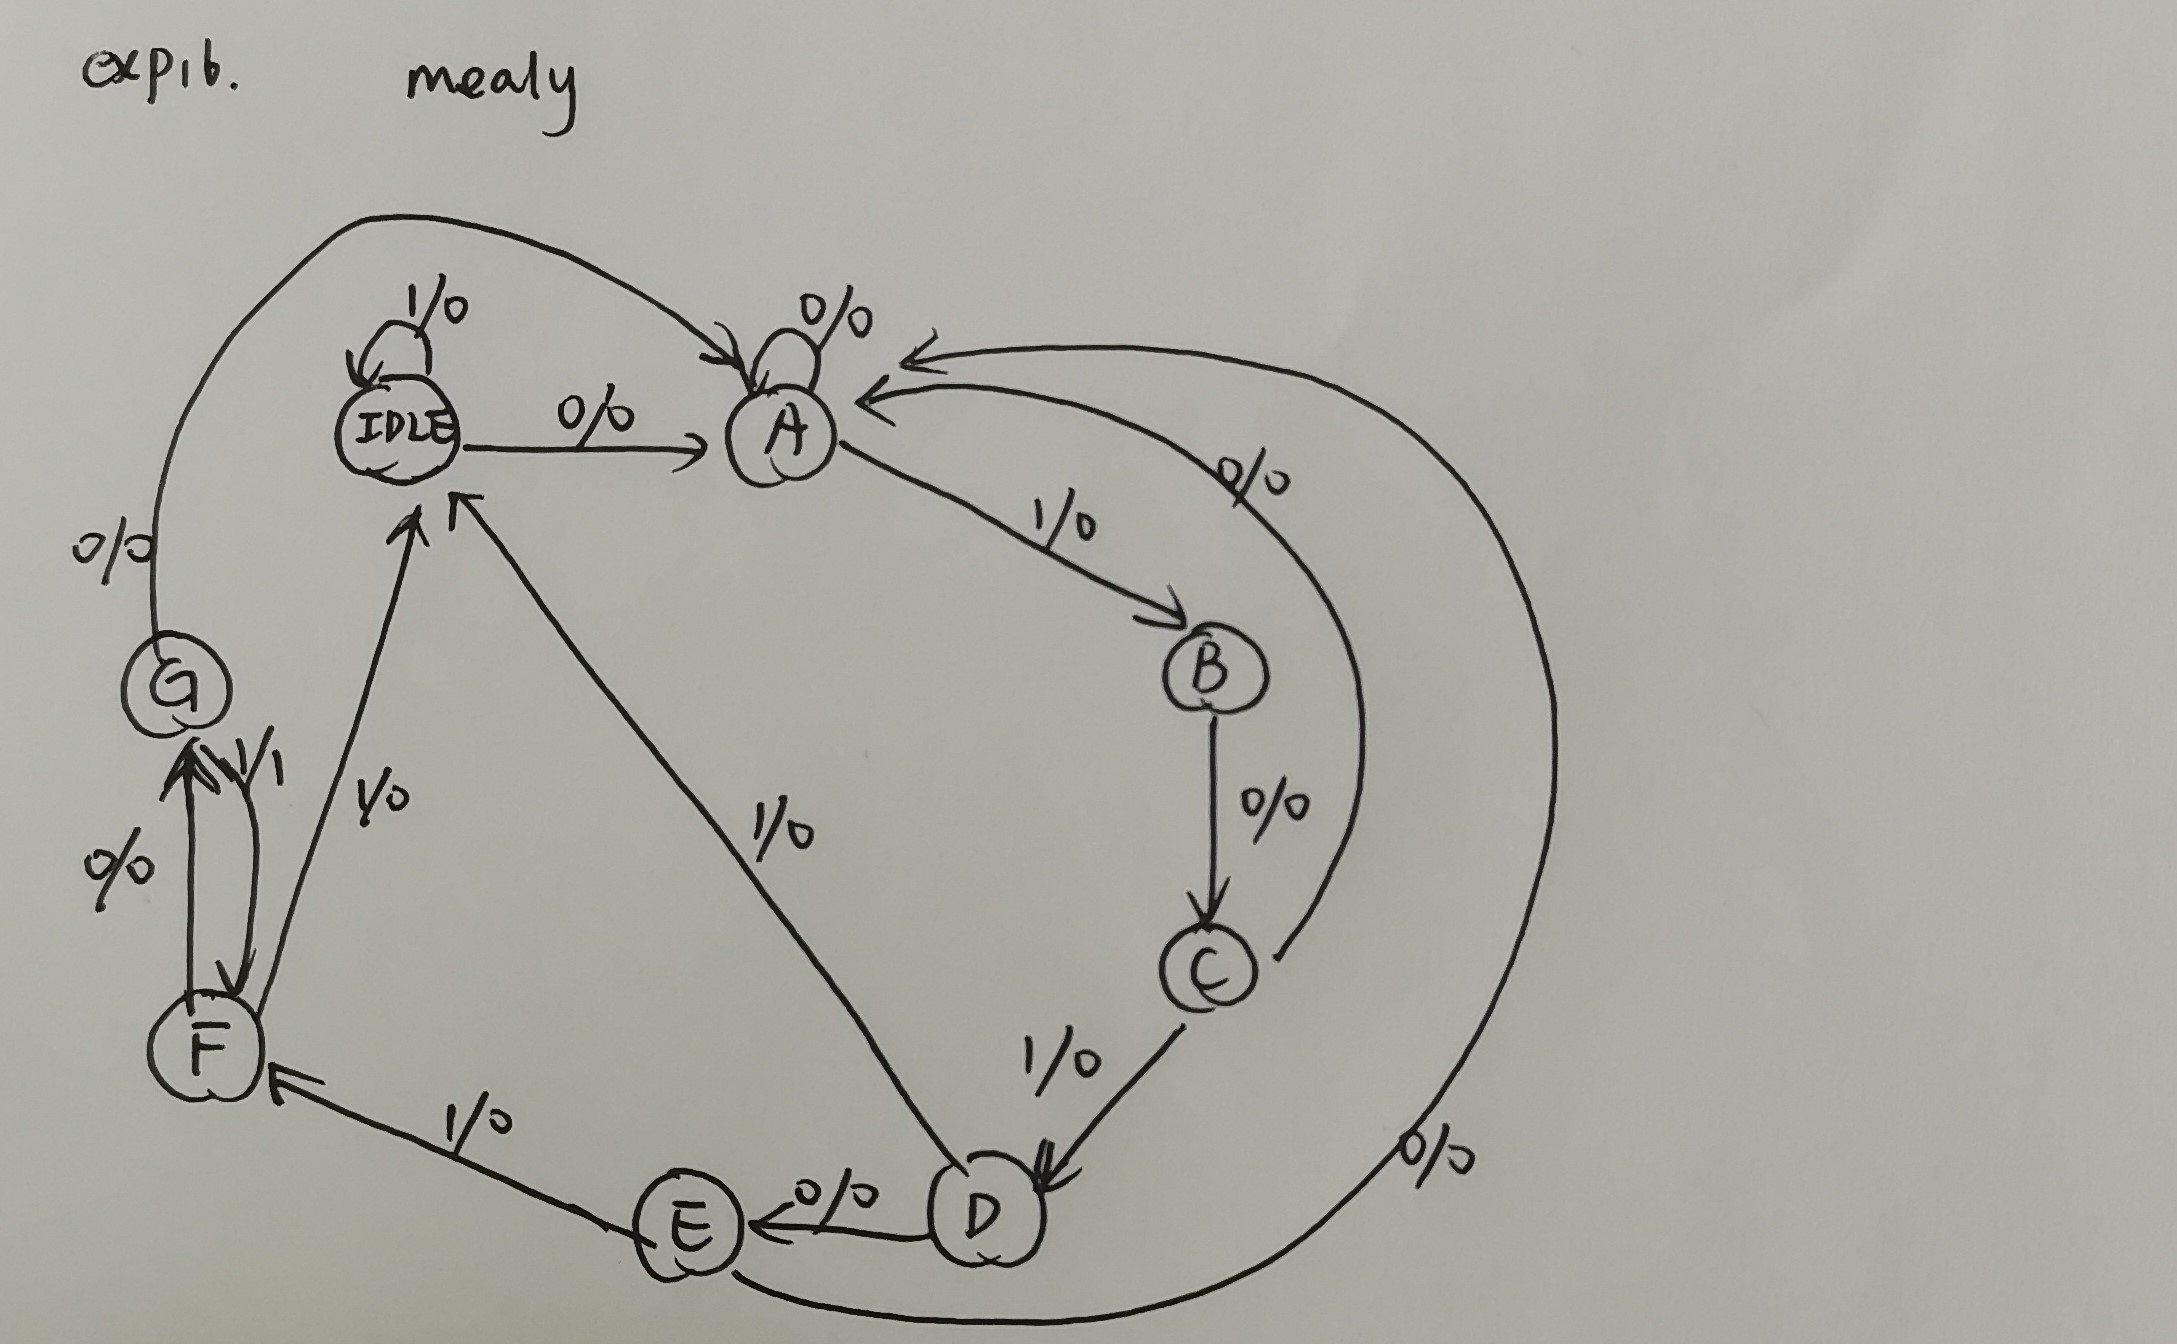 expib. mealy
1/0 0/0
IDLE 0/0 A
0/0 1/0 0/0
G B
1/1 1/0 1/0 0/0
0/0
C
F 1/0
1/0 0/0
E 0/0 D